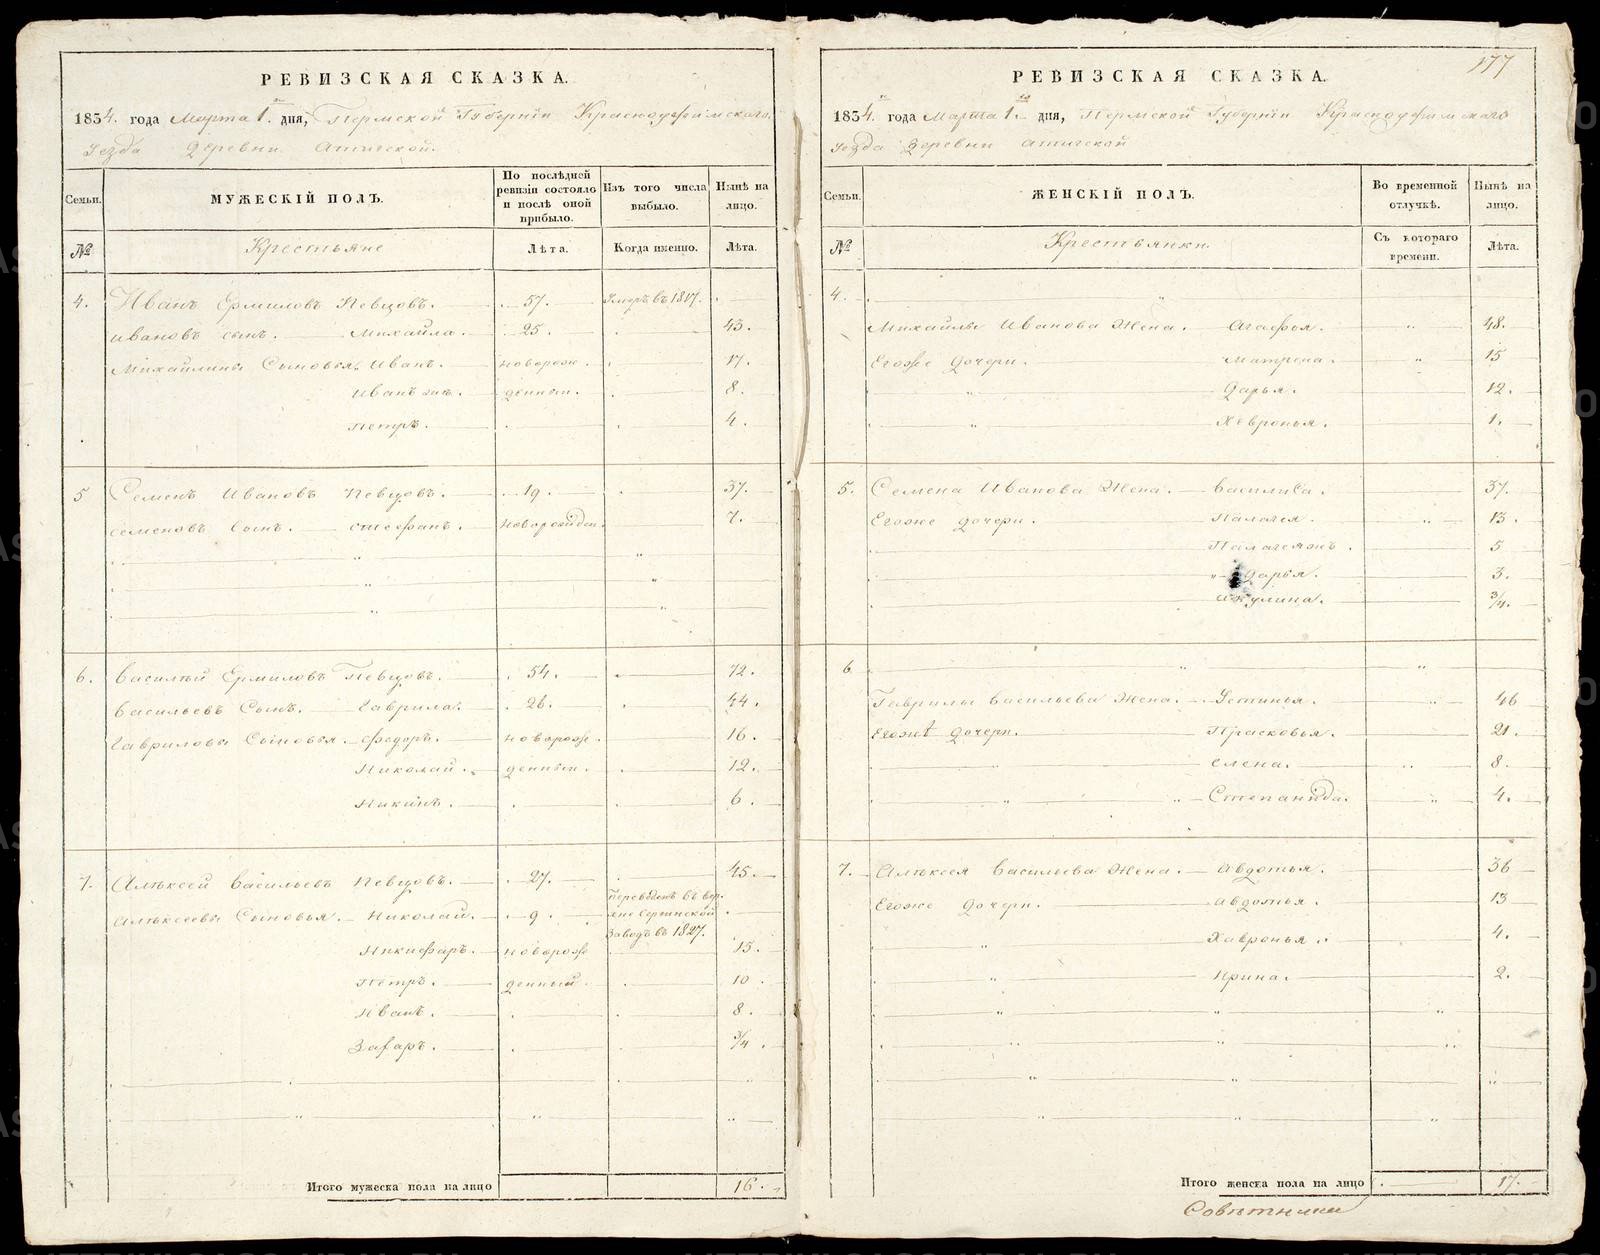 РЕВИЗСКАЯ СКАЗКА.
1834. года Марта 1. дня, Пермской Губернiи Красноуфимскаго
Уезда Деревни Атигской
Семьи.
МУЖЕСКІЙ ПОЛЪ.
По послѣдней ревизіи состояло и послѣ оной прибыло.
Изъ того числа выбыло.
Нынѣ на лицо.
№
Крестьяне
Лѣта.
Когда именно.
Лѣта.
4. Иванъ Ермиловъ Певцовъ. 57. Умеръ въ 1817.
Ивановъ сынъ. Михайла. 25. 43.
Михайлины Сыновья. Иванъ. новорож. 17.
Иванъ же. денныи. 8.
Петръ. 4.
5 Семенъ Ивановъ Певцовъ. 19. 37.
Семеновъ Сынъ. Стефанъ. новорожден. 7.
6. Василiй Ермиловъ Певцовъ. 54. 72.
Васильевъ Сынъ. Гаврила. 26. 44.
Гавриловы Сыновья. Федоръ. новорож. 16.
Николай. денныи. 12.
Никинъ. 6.
7. Алѣксей Васильевъ Певцовъ. 27. 45.
Алѣксеевы Сыновья. Николай. 9. Переведенъ въ
Сергинской
Заводъ въ 1827.
Никифаръ. новорож 15.
Петръ. денныи 10
Иванъ. 8.
Захаръ. 3/4.
Итого мужеска пола на лицо 16.
177
РЕВИЗСКАЯ СКАЗКА.
1834. года Марта 1. дня, Пермской Губернiи Красноуфимскаго
Уезда Деревни Атигской
Семьи.
ЖЕНСКІЙ ПОЛЪ.
Во временной отлучкѣ.
Нынѣ на лицо.
№
Крестьянки.
Съ котораго времени.
Лѣта.
4.
Михайлы Иванова Жена. Агафья. 48.
Егоже дочери. Матрена. 15
Дарья. 12.
Хевронья. 1.
5. Семена Иванова Жена. Василиса. 37.
Егоже дочери. Палагея. 13.
Палагеяжъ. 5
Дарья. 3.
Акулина. 3/4.
6
Гаврилы Васильева Жена. Устинья. 46
Егоже дочери. Прасковья. 21.
Елена. 8.
Степанида. 4.
7. Алѣксея Васильева Жена. Авдотья. 36
Егоже дочери. Авдотья. 13
Хавронья. 4.
Ирина. 2.
Итого женска пола на лицо 17.
Совѣтники